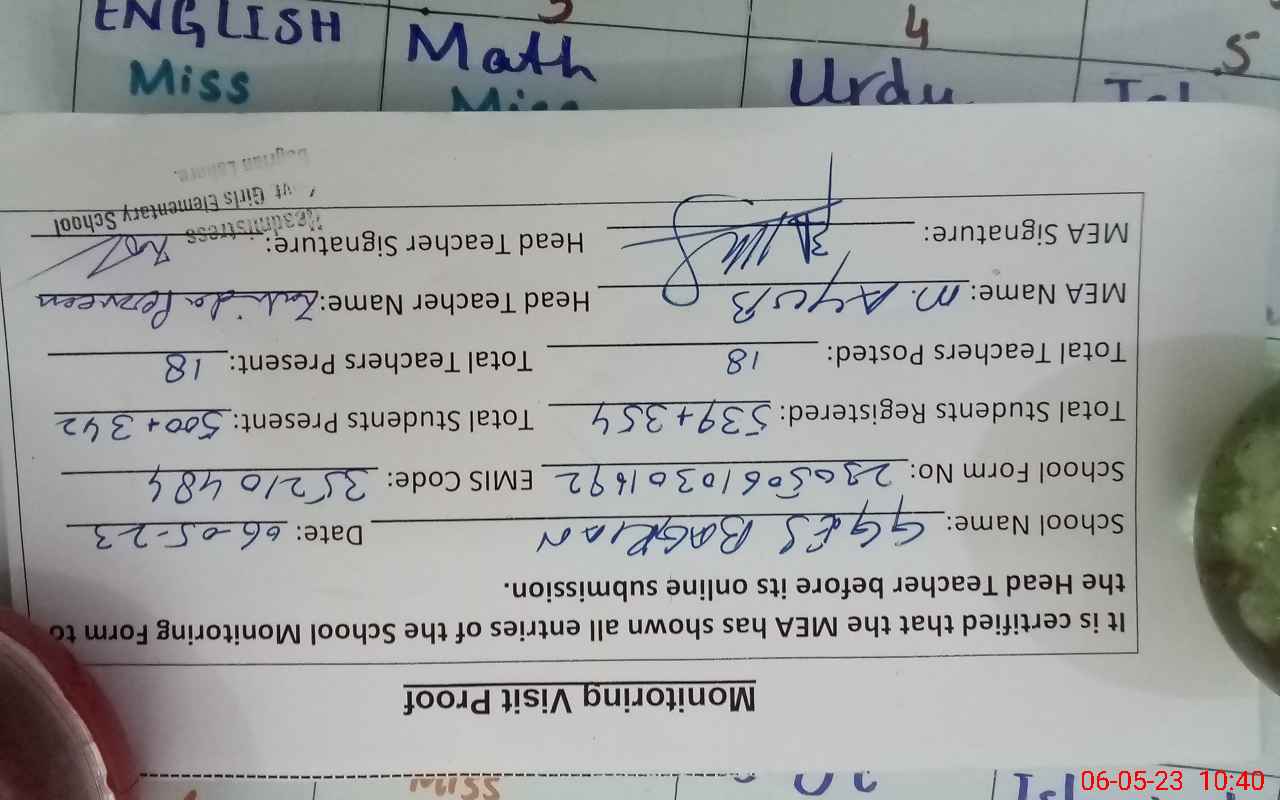 ENGLISH
Miss
3
Math
Miss
4
Urdu
5
Monitoring Visit Proof
It is certified that the MEA has shown all entries of the School Monitoring Form to
the Head Teacher before its online submission.
School Name: GGES BAGRIAN Date: 06-05-23
School Form No: 23050610301692 EMIS Code: 35210484
Total Students Registered: 539+354 Total Students Present: 500+342
Total Teachers Posted: 18 Total Teachers Present: 18
MEA Name: M. AYUB Head Teacher Name: Zahida Perveen
MEA Signature: Head Teacher Signature:
Headmistress
vt Girls Elementary School
Bagrian Lahore.
06-05-23 10:40